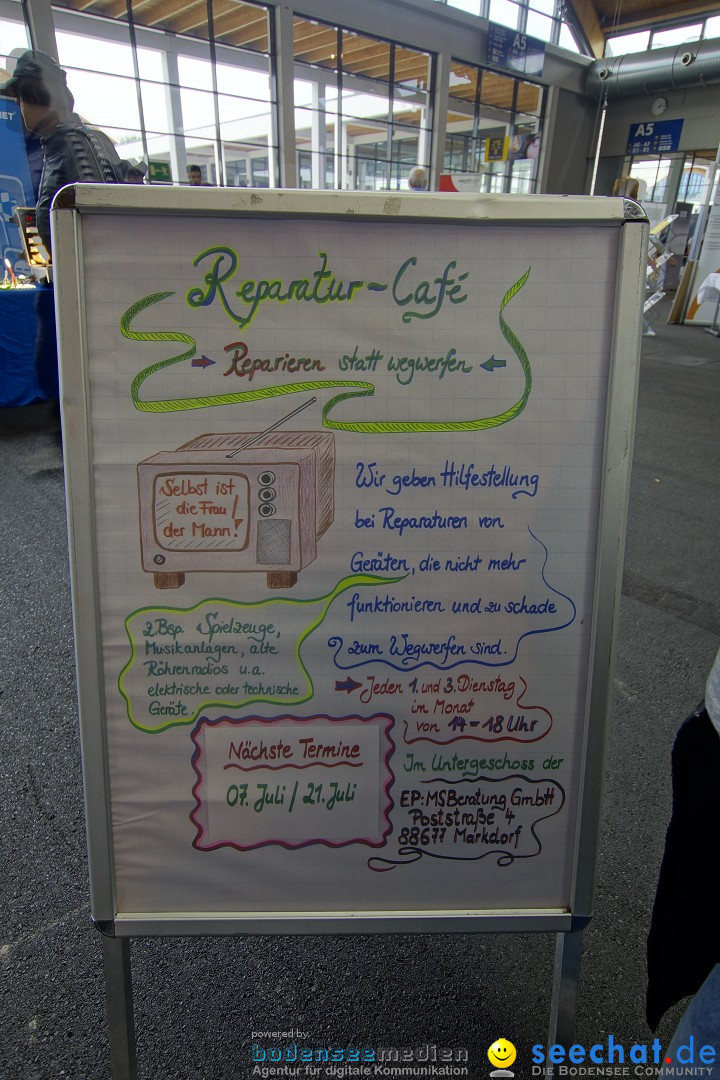 A5
A5
Reparatur-Café
Reparieren statt wegwerfen
Selbst ist
die Frau/
der Mann!
Wir geben Hilfestellung
bei Reparaturen von
Geräten, die nicht mehr
funktionieren und zu schade
zum Wegwerfen sind.
z.Bsp Spielzeuge,
Musikanlagen, alte
Röhrenradios u.a.
elektrische oder technische
Geräte.
Jeden 1. und 3. Dienstag
im Monat
von 14-18 Uhr
Nächste Termine
07. Juli / 21. Juli
Im Untergeschoss der
EP:MSBeratung GmbH
Poststraße 4
88677 Markdorf
powered by:
bodenseemedien
Agentur für digitale Kommunikation
seechat.de
Die Bodensee Community